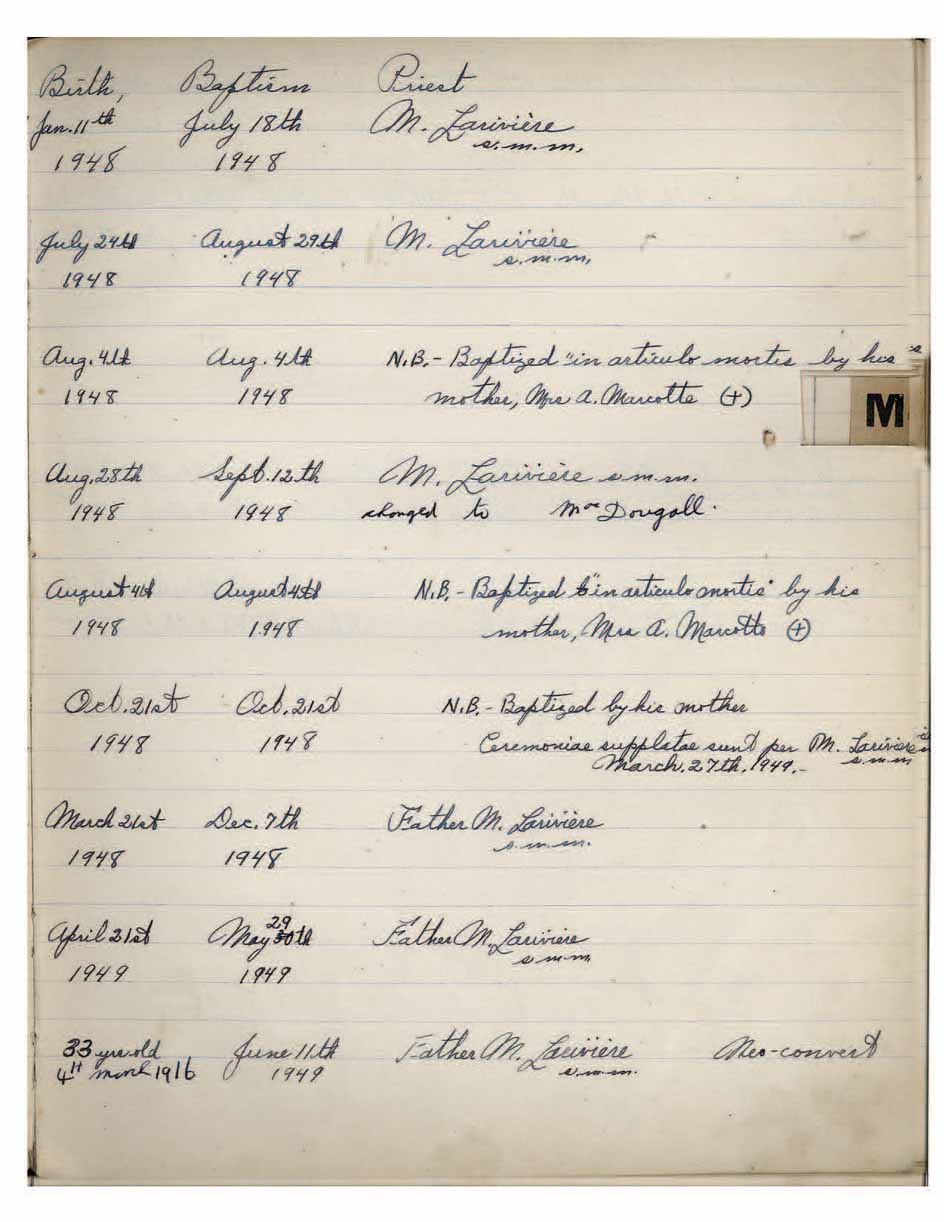 Birth, Baptism Priest
Jan. 11th July 18th M. Larivière
s.m.m.
1948 1948
July 24th August 29th M. Larivière
s.m.m.
1948 1948
Aug. 4th Aug. 4th N.B. - Baptized "in articulo mortis by his
1948 1948 mother, Mrs A. Marcotte (+)
M
Aug. 28th Sept. 12th M. Larivière s.m.m.
1948 1948 changed to Mac Dougall.
August 4th August 4th N.B. - Baptized "in articulo mortis" by his
1948 1948 mother, Mrs A. Marcotte (+)
Oct. 21st Oct. 21st N.B. - Baptized by his mother
1948 1948 Ceremoniae suppletae sunt per M. Larivière
s.m.m
March. 27th, 1949.-
March 21st Dec. 7th Father M. Larivière
s.m.m.
1948 1948
29
April 21st May 30th Father M. Larivière
s.m.m
1949 1949
33 yrs old June 11th Father M. Larivière Neo-convert
4th march 1916 1949 s.m.m.